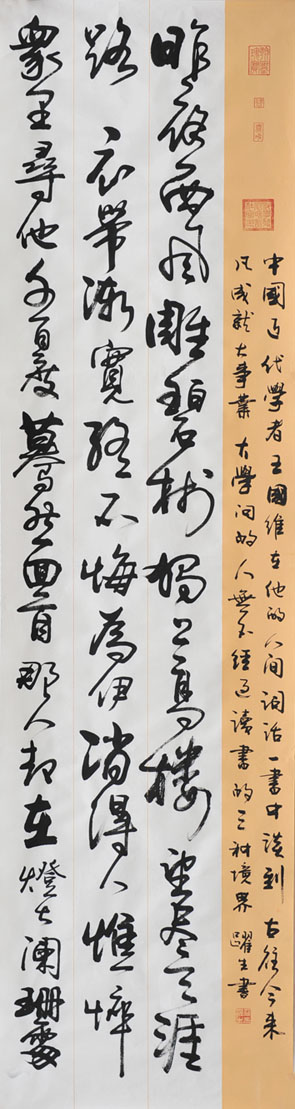 中國近代學者王國維在他的人间词话一書中谈到古往今来
凡成就大事業大學问的人無不經过讀書的三种境界 躍生書
昨夜西风雕碧树獨上高楼望尽天涯
路 衣帶漸寬终不悔為伊消得人憔悴
眾里尋他千百度驀然回首那人却在燈火阑珊處